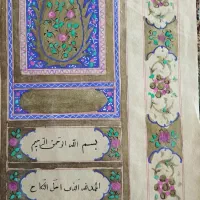 بسم الله الرحمن الرحيم
الحمد لله الذى احل النكاح